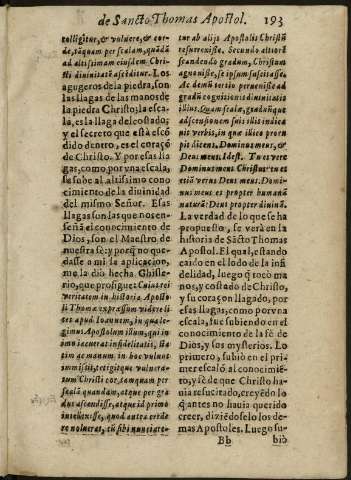 de Sancto Thomas Apostol. 193
colligitur, & vulnere, & cor-
de, tãquam per scalam, quãdã
ad altissimam eiusdem Chri-
sti diuinitatẽ ascẽditur. Los
agugeros de la piedra, son
las llagas de las manos de
la piedra Christo; la esca-
la, es la llaga del costado;
y el secreto que està escõ
dido dentro, es el coraçõ
de Christo. Y por esas lla
gas, como por vna escala,
se sube al altissimo cono
cimiento de la diuinidad
del mismo Señor. Esas
llagas son las que nos en-
señã el conocimiento de
Dios, son el Maestro de
nuestra fè: y porq̃ no que-
dasse a mi la aplicacion,
me la diò hecha. Ghisle-
rio, que prosigue: Cuius rei
veritatem in historia Aposto-
li Thomæ expressum videre li-
cet apud Ioannem, in qua le-
gimus Apostolum illum, qui in
imo iacuerat infidelitatis, sta
tim ac manum in hoc vulnus
immisit, tetigitque vulnera-
tum Christi cor, tamquam per
scalã quandam, atque per gra
dus ascendisse, atque id primo
intellexisse, quod antea crede
re nolucrat, cũ sibi nunciare-
tur ab alijs Apostolis Christũ
resurrexisse. Secundo altiorẽ
scandendo gradum, Christum
agnouisse, se ipsum suscitasse.
Ac demũ tertio peruenisse ad
gradũ cognitionis diuinitatis
illius. Quam scalæ, graduũque
adscensionem suis illis indica
uit verbis, in quæ illico proru
pit dicens, Dominus meus, &
Deus meus. Idest. Tu es vere
Dominus meus Christus: tu es
etiã verus Deus meus. Domi-
nus meus es propter humanã
naturã: Deus propter diuinã.
La verdad de lo que se ha
propuesto, se verà en la
historia de Sãcto Thomas
Apostol. El qual, estando
caido en el lodo de la infi
delidad, luego q̃ tocò ma
nos, y costado de Christo,
y su coraçon llagado, por
esas llagas, como por vna
escala, fue subiendo en el
conocimiento de la fè de
Dios, y sus mysterios. Lo
primero, subiò en el pri-
mer escalõ al conocimiẽ-
to, y fè de que Christo ha-
uia resucitado, creyẽdo lo
q̃ antes no hauia querido
creer, diziẽdoselo los de-
mas Apostoles. Luego su-
Bb biò